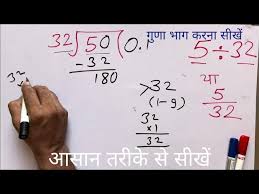 गुणा भाग करना सीखें
32)50(0.1
-32
180
5÷32
या
5
32
32
>32
(1-9)
32
×1
32
आसान तरीके से सीखें